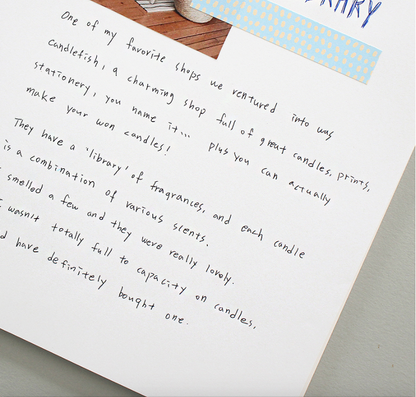 RARY
One of my favorite shops we ventured into was
candlefish, a charming shop full of great candles, prints,
stationery, you name it... plus you can actually
make your won candles!
They have a 'library' of fragrances, and each candle
is a combination of various scents.
smelled a few and they were really lovely.
wasn't totally full to capacity on candles,
d have definitely bought one.